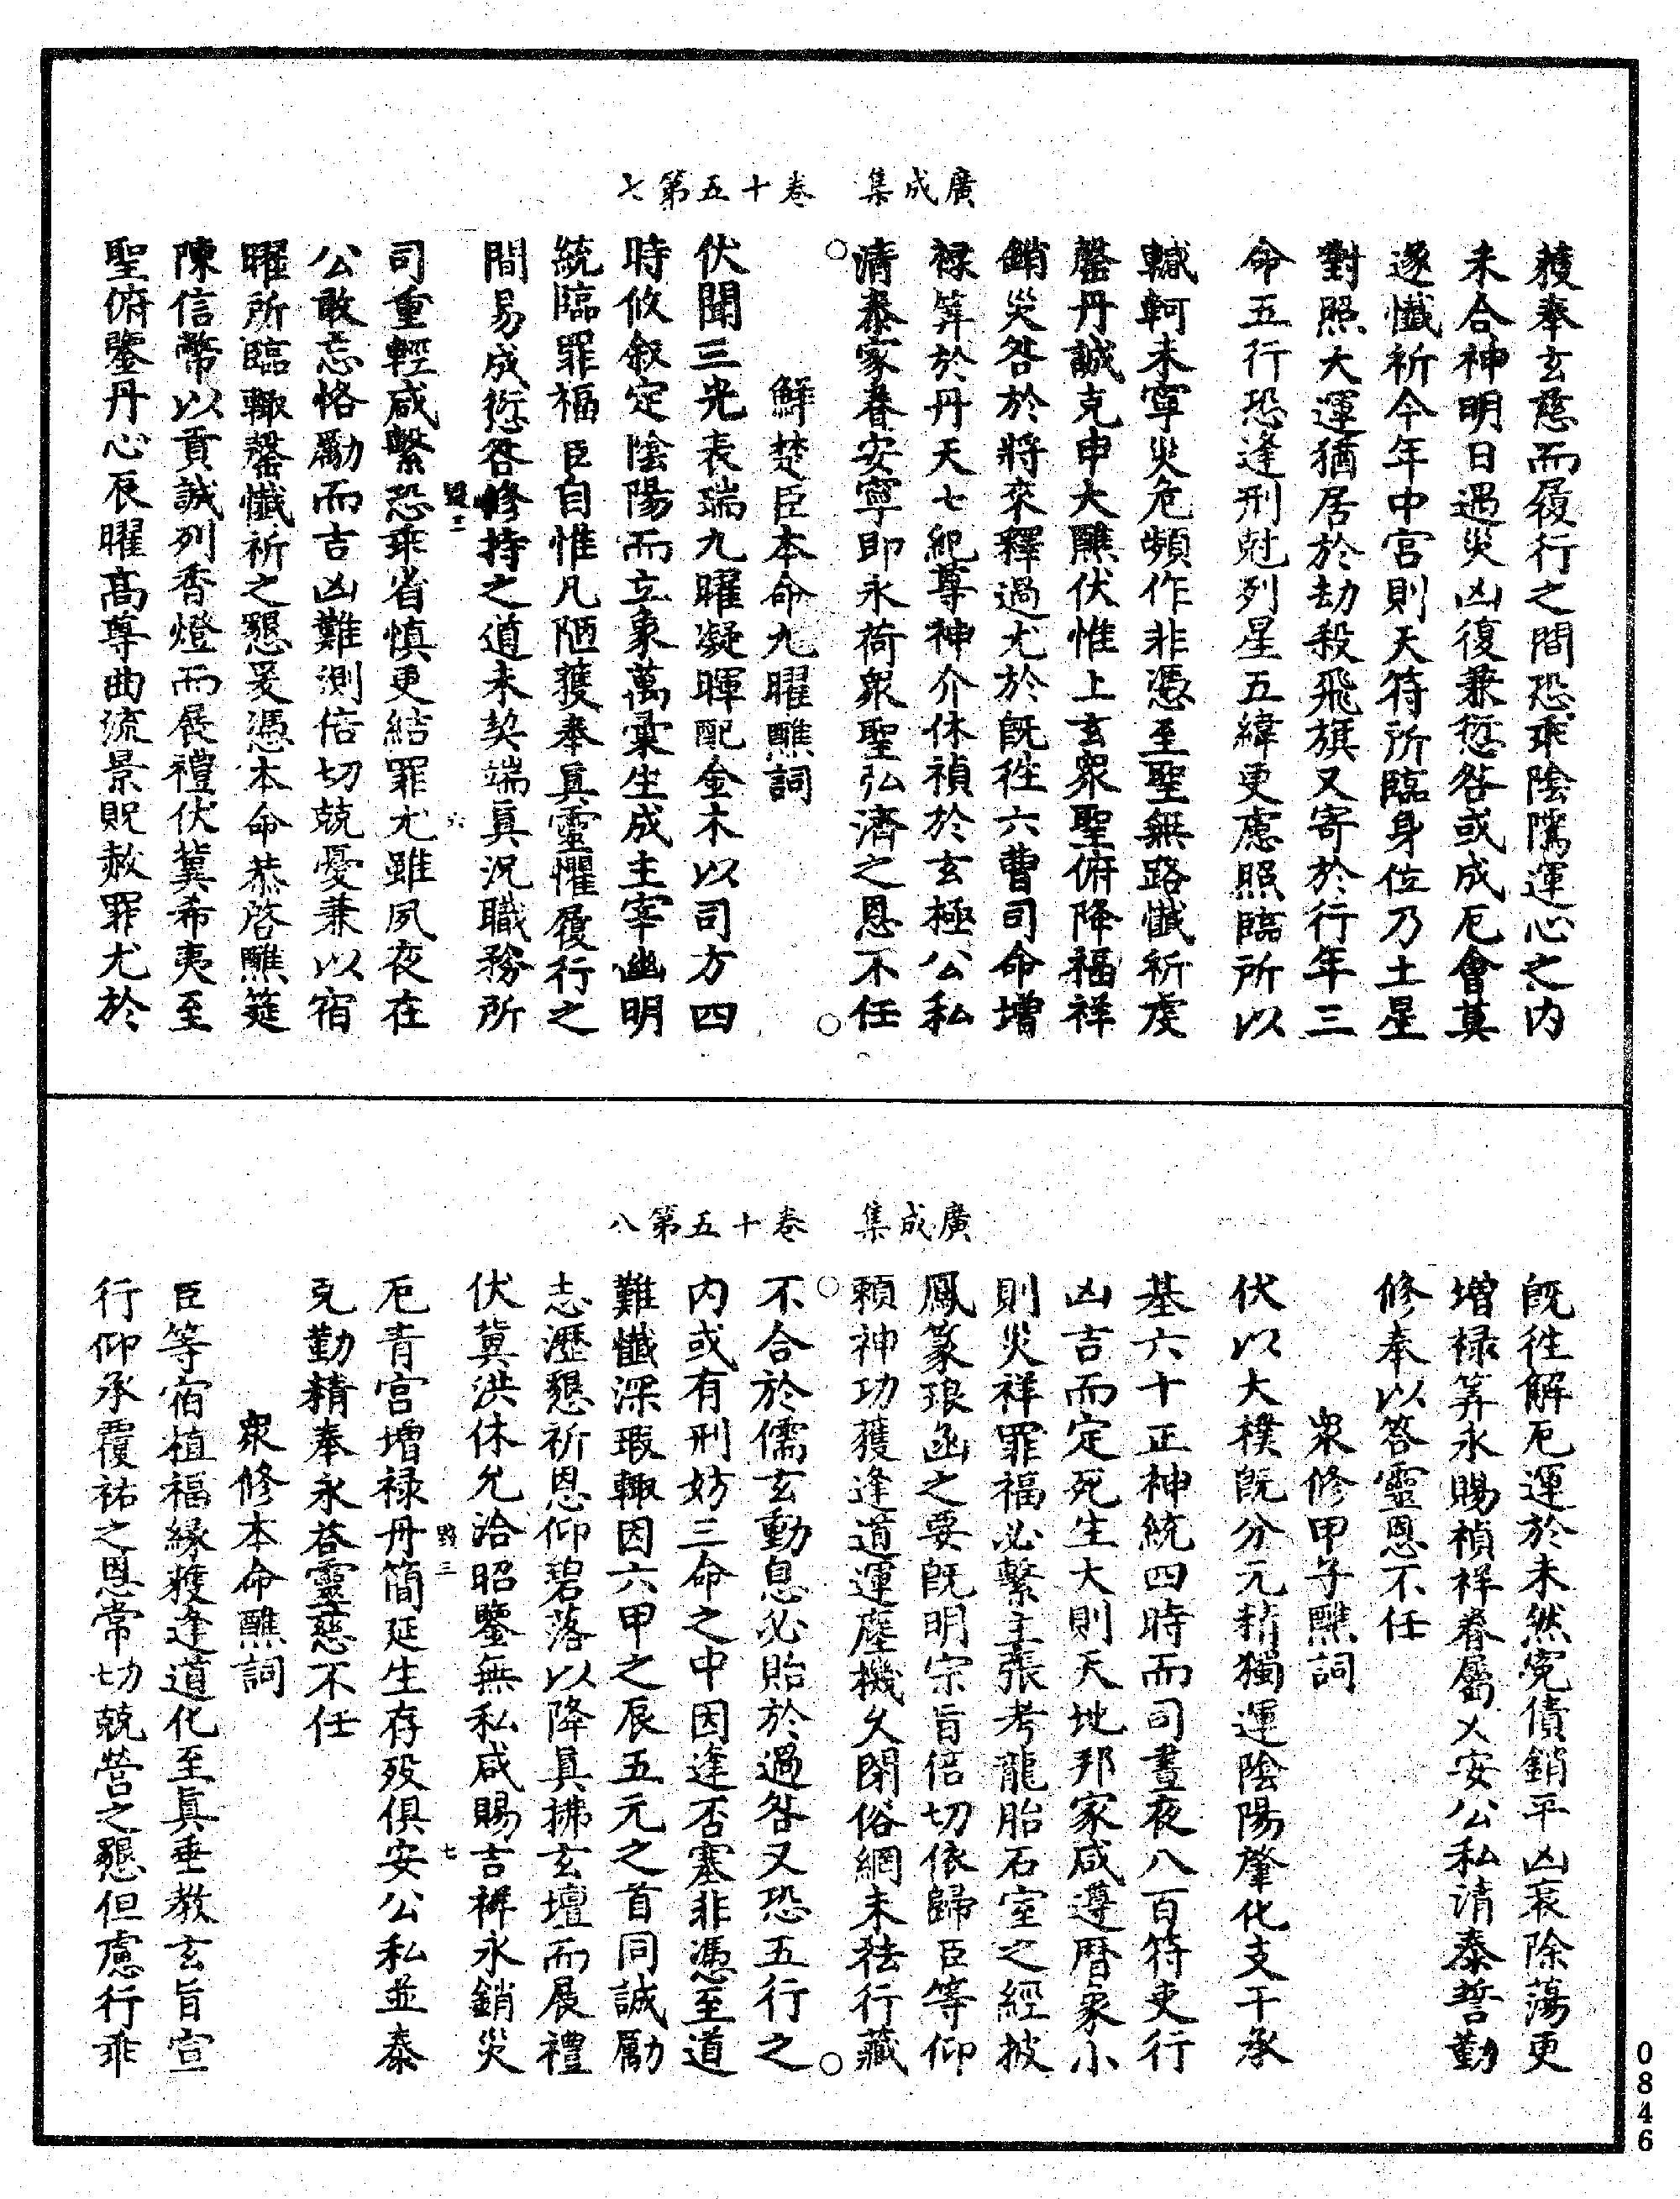 廣成集　卷十五第七
獲奉玄慈而履行之間恐乖陰隲運心之内
未合神明日遇災凶復兼愆咎或成厄會莫
遂懺祈今年中宮則天符所臨身位乃土星
對照大運猶居於劫殺飛旗又寄於行年三
命五行恐逢刑尅列星五緯更慮照臨所以
轗軻未寧災危頻作非憑至聖無路懺祈虔
罄丹誠克申大醮伏惟上玄衆聖俯降福祥
銷災咎於將來釋過尤於既往六曹司命增
禄筭於丹天七紀尊神介休禎於玄極公私
清泰家眷安寧即永荷衆聖弘濟之恩不任
鮮楚臣本命九曜醮詞
伏聞三光表瑞九曜凝暉配金木以司方四
時攸叙定陰陽而立象萬彙生成主宰幽明
統臨罪福臣自惟凡陋獲奉真靈懼履行之
間易成愆咎修持之道未契端真况職務所
司重輕咸繫恐乖省慎更結罪尤雖夙夜在
公敢忘恪勵而吉凶難測倍切兢憂兼以宿
曜所臨輙罄懺祈之懇爰憑本命恭啓醮筵
陳信幣以貢誠列香燈而展禮伏冀希夷至
聖俯鑒丹心辰曜高尊曲流景貺赦罪尤於
六
廣成集　卷十五第八
既往解厄運於未然寃債銷平凶衰除蕩更
增禄筭永賜禎祥眷屬乂安公私清泰誓勤
修奉以答靈恩不任
衆修甲子醮詞
伏以大樸既分元精獨運陰陽肇化支干承
基六十正神統四時而司晝夜八百符吏行
凶吉而定死生大則天地邦家咸遵曆象小
則災祥罪福必繫主張考龍胎石室之經披
鳳篆琅函之要既明宗旨倍切依歸臣等仰
賴神功獲逢道運塵機久閉俗網未祛行藏
不合於儒玄動息必貽於過咎又恐五行之
内或有刑妨三命之中因逢否塞非憑至道
難懺深瑕輙因六甲之辰五元之首同誠勵
志瀝懇祈恩仰碧落以降真拂玄壇而展禮
伏冀洪休允洽昭鑒無私咸賜吉祥永銷災
厄青宮增禄丹簡延生存殁俱安公私並泰
克勤精奉永荅靈慈不任
衆修本命醮詞
臣等宿植福緣獲逢道化至真垂教玄旨宣
行仰承覆祐之恩常切兢營之懇但慮行乖
七
0846